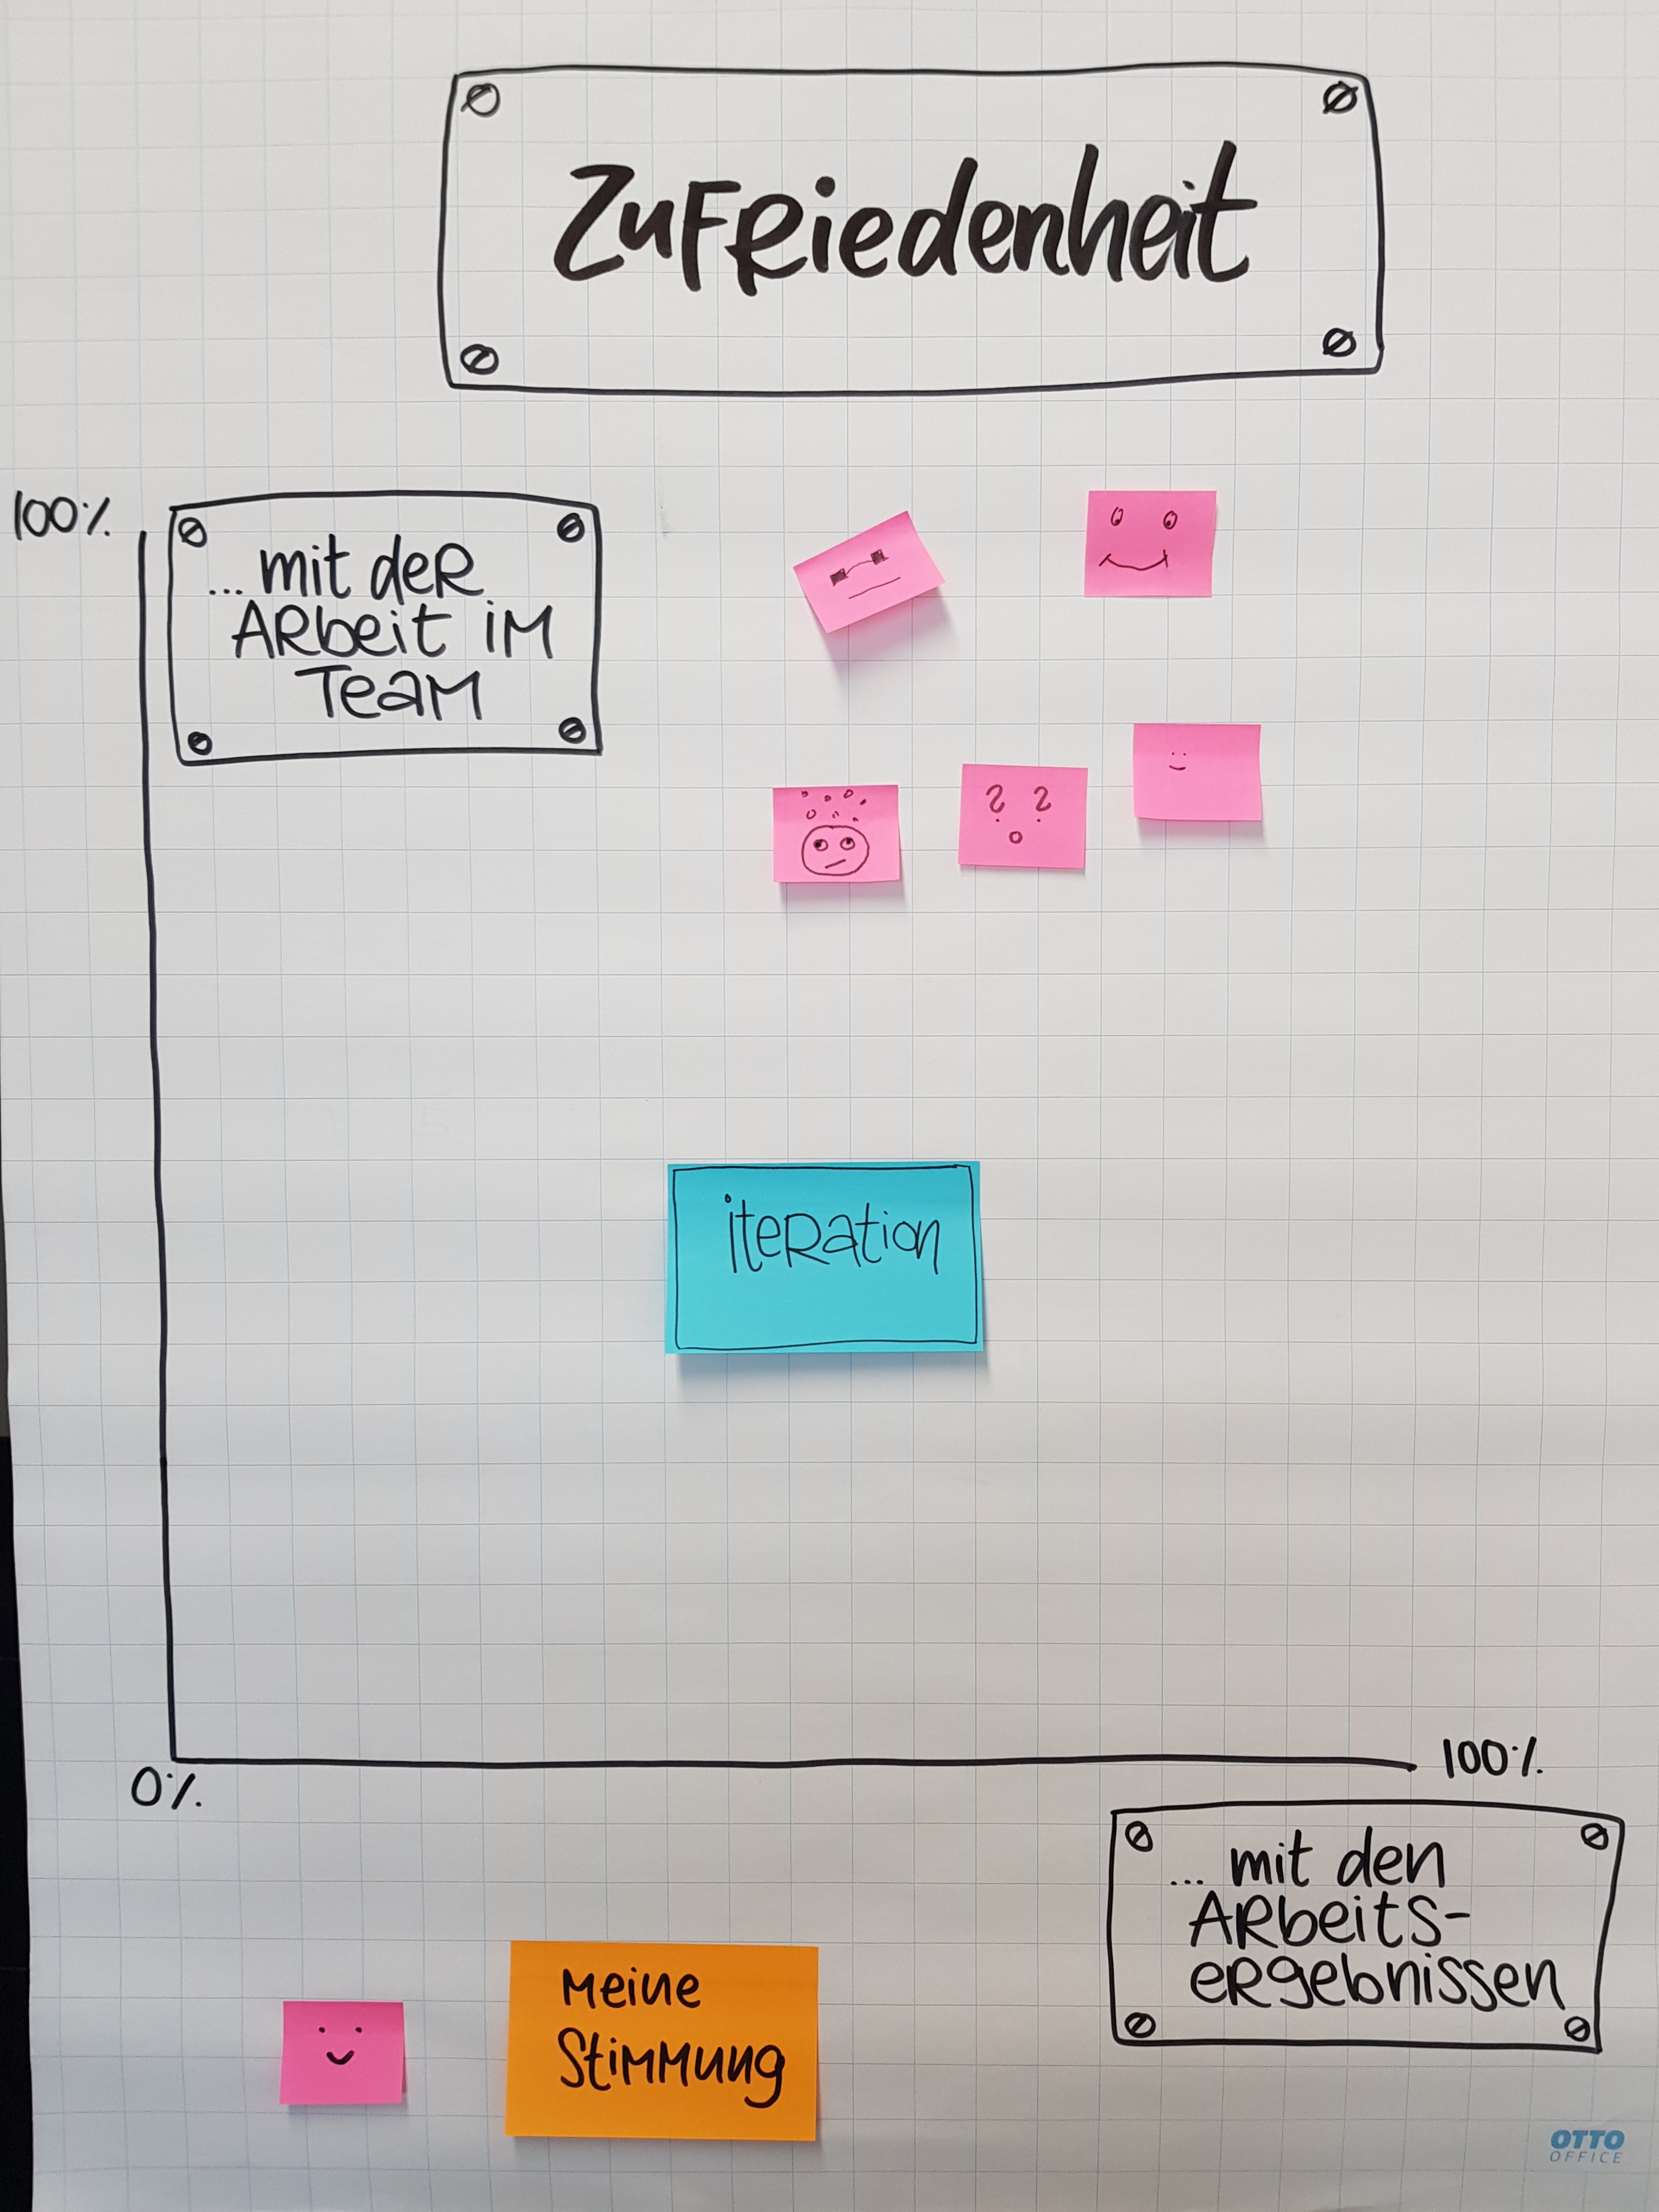 Zufriedenheit
100%
... mit der
Arbeit im
Team
? ?
iteration
100%
0%
... mit den
Arbeits-
ergebnissen
Meine
Stimmung
OTTO
OFFICE